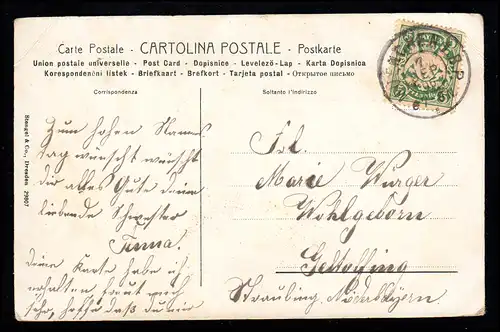 Carte Postale - CARTOLINA POSTALE - Postkarte
Union postale universelle - Post Card - Dopisnice - Levelező-Lap - Karta Dopisnica
Korespondenční listek - Briefkaart - Brefkort - Tarjeta postal - Открытое письмо
Corrispondenza
Soltanto l'indirizzo
Stengel & Co., Dresden 29907
Zum hohen Namens
tag wünscht wünscht
dir alles Gute deine
liebende Schwester
Anna.
Deine Karte habe ich
erhalten freut mich
sehr, hoffe daß du
Frl.
Marie Würger
Wohlgeborn
Geltolfing
Straubing Niederbayern